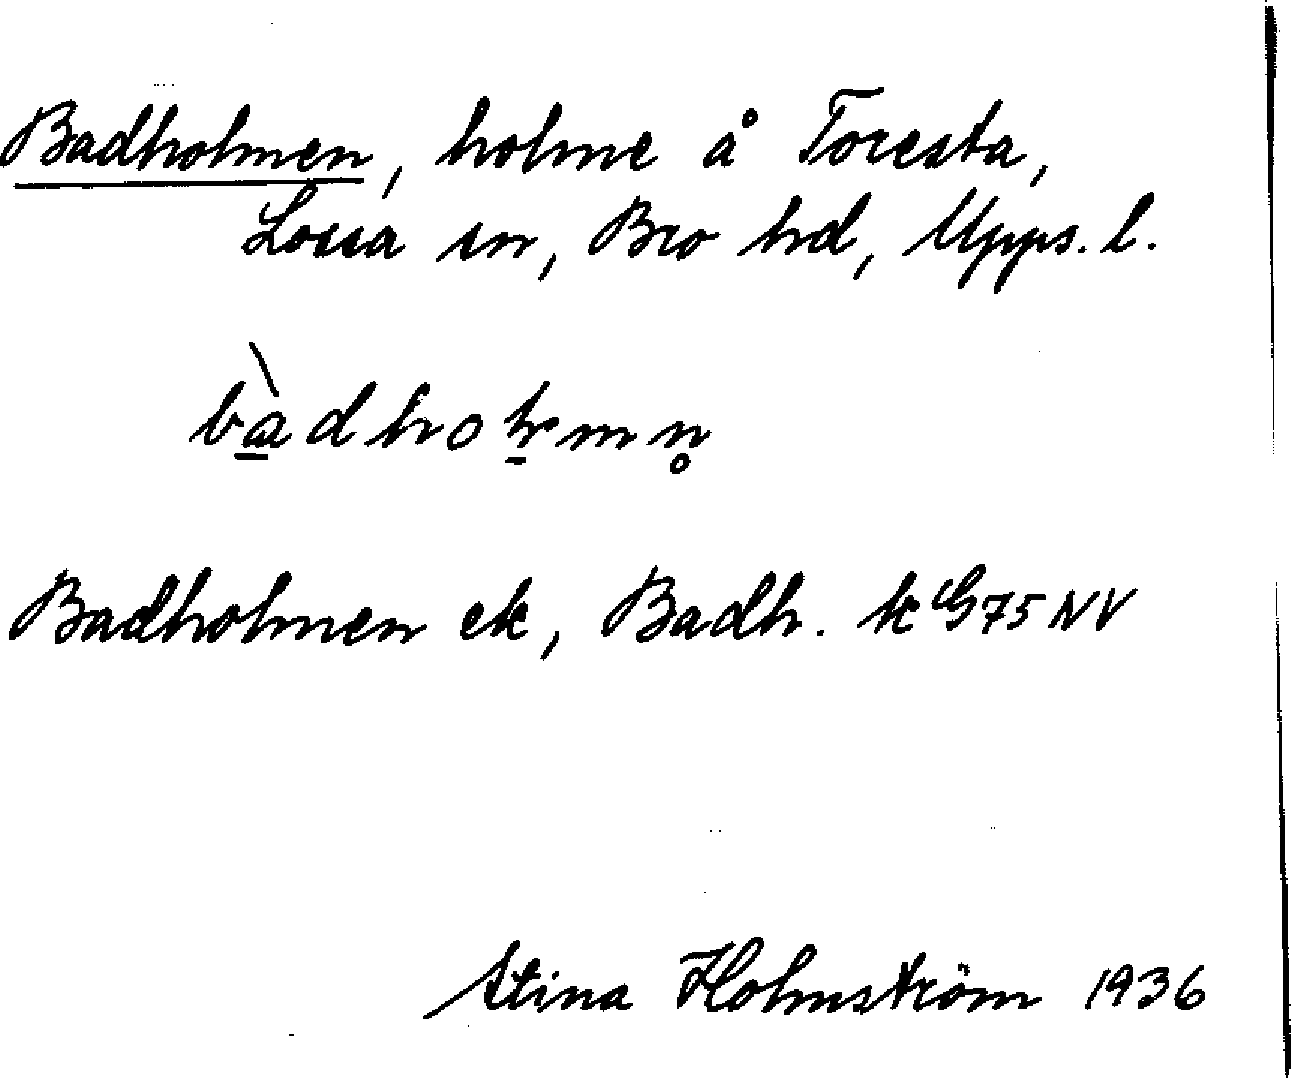 Badholmen, holme å Toresta,
Lossa sn, Bro hd, Upps. l.
Badholmen ek, Badh. k G75NV
Stina Holmström 1936